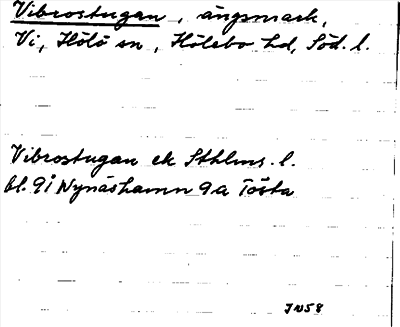 Vibrostugan, ängsmark,
Vi, Hölö sn, Hölebo hd, Söd. l.
Vibrostugan ek Sthlms. l.
bl. 9i Nynäshamn 9a Tösta
JN58